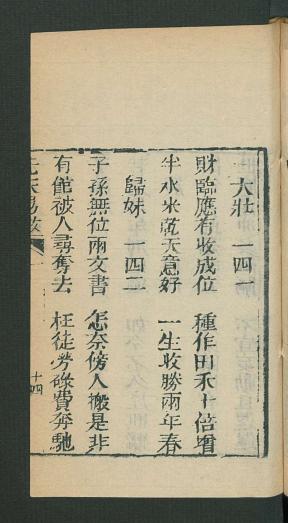 大壯 一四一
財臨應有收成位 種作田禾十倍增
半水米乾天意好 一生收勝兩年春
歸妹 一四二
子孫無位兩文書 怎奈傍人搬是非
有館被人尋奪去 枉徒勞碌費奔馳
易數
十四